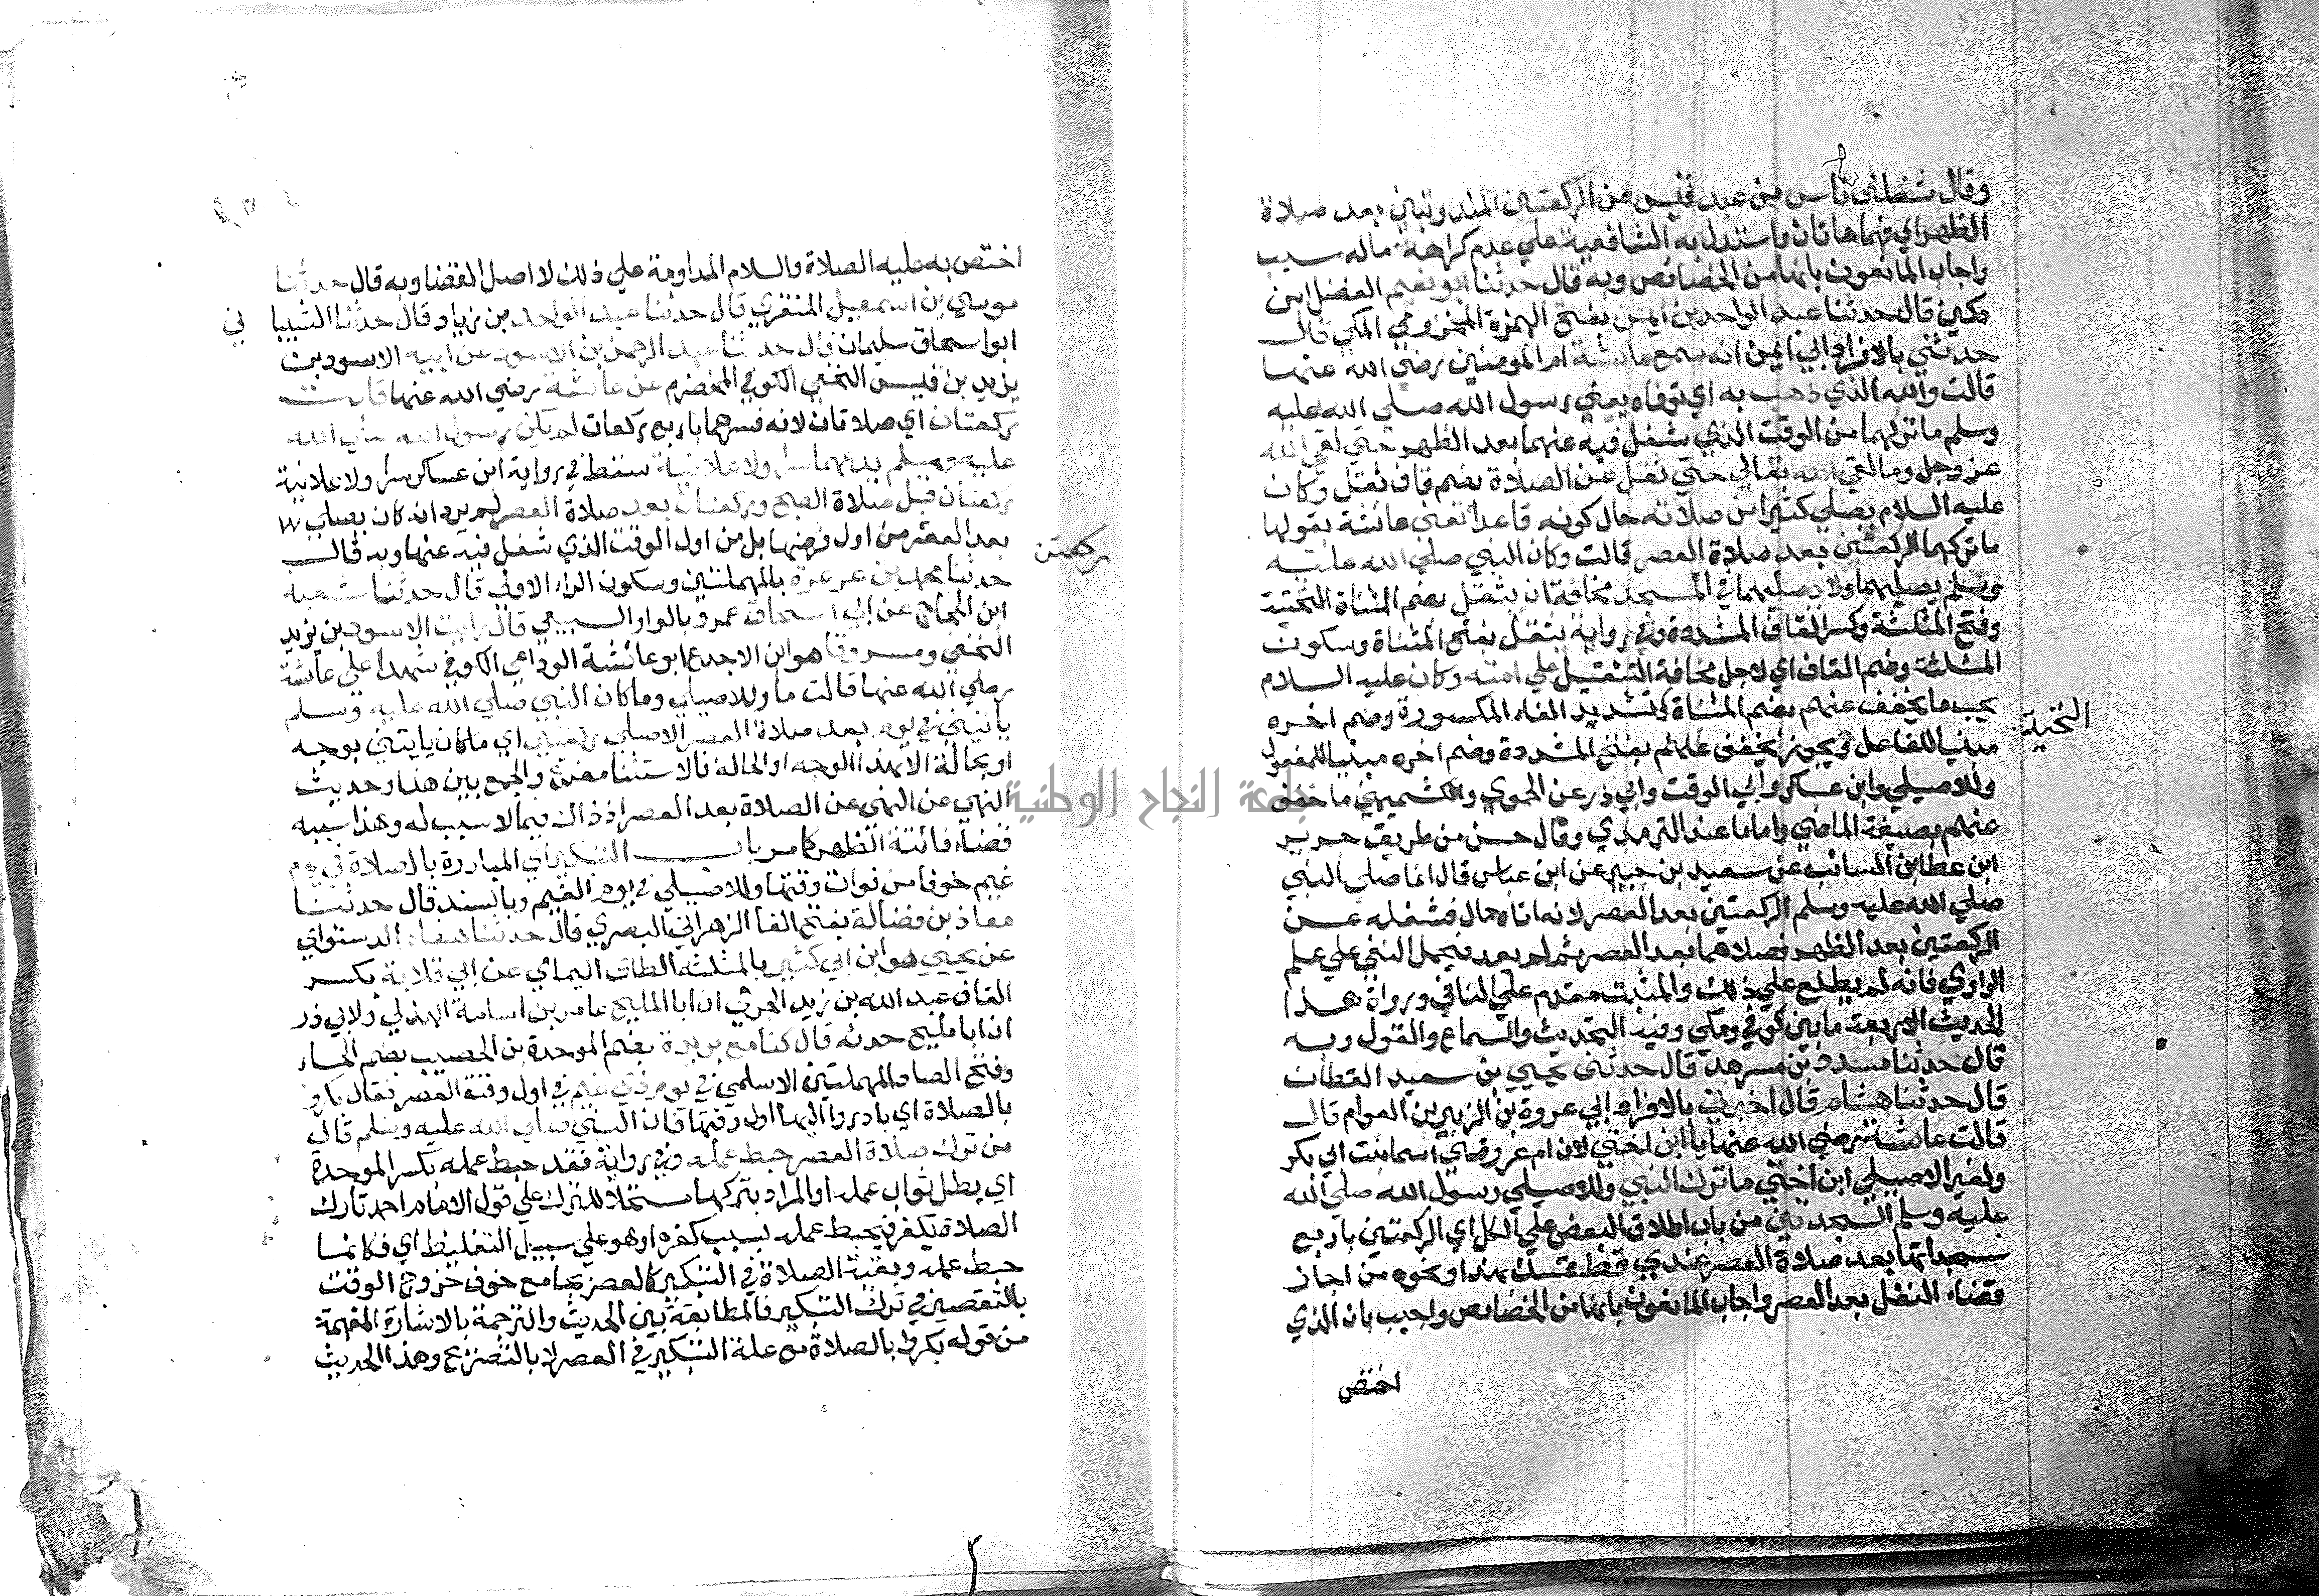 وقال شغلني ناس من عبد قيس عن الركعتين المندوبتين بعد صلاة
الظهر اي فهما هاتان واستدل به الشافعية علي عدم كراهة ماله سبب
واجاب المانعون بانها من الخصائص وبه قال حدثنا ابو نعيم الفضل ابن
دكين قال حدثنا عبد الواحد بن ايمن بفتح الهمزة المخزومي المكي قال
حدثني بالافراد ابي ايمن انه سمع عائشة ام المومنين رضي الله عنها
قالت والله الذي ذهب به اي توفاه يعني رسول الله صلي الله عليه
وسلم ما تركهما من الوقت الذي شغل فيه عنهما بعد الظهر حتي لقي الله
عز وجل وما لقي الله تعالي حتي ثقل عن الصلاة بضم قاف ثقل وكان
عليه السلام يصلي كثيرا من صلاته حال كونه قاعدا تعني عائشة بقولها
ما تركهما الركعتين بعد صلاة العصر قالت وكان النبي صلي الله عليه
وسلم يصليهما ولا يصليهما في المسجد مخافة ان يثقل بضم المثناة التحتية
وفتح المثلثة وكسر القاف المشددة وفي رواية يثقل بفتح المثناة وسكون
المثلثة وضم القاف اي لاجل مخافة التثقيل علي امته وكان عليه السلام
يحب ما يخفف عنهم بضم المثناة وتشديد الفاء المكسورة وضم اخره
التحتية
مبنيا للفاعل ويجوز يخفف عنهم بفتح المشددة وضم اخره مبنيا للمفعول
وللاصيلي وابن عساكر وابي الوقت وابي ذر عن الحموي والكشميهني ما خفف
عنهم بصيغة الماضي واما ما عند الترمذي وقال حسن من طريق جرير
ابن عطا ابن السائب عن سعيد بن جبير عن ابن عباس قال انما صلي النبي
صلي الله عليه وسلم الركعتين بعد العصر لانه اتاه مال فشغله عن
الركعتين بعد الظهر فصلاهما بعد العصر ثم لم يعد فيحمل النفي علي علم
الراوي فانه لم يطلع علي ذلك والمثبت مقدم علي النافي ورواة هذا
الحديث الاربعة ما بين كوفي ومكي وفيه التحديث والسماع والقول وبه
قال حدثنا مسدد بن مسرهد قال حدثني يحيي بن سعيد القطان
قال حدثنا هشام قال اخبرني بالافراد ابي عروة بن الزبير بن العوام قال
قالت عائشة رضي الله عنها يا ابن اختي لان ام عروة هي اسما بنت ابي بكر
ولغير الاصيلي ابن اختي ما ترك النبي وللاصيلي رسول الله صلي الله
عليه وسلم السجدتين من باب اطلاق البعض علي الكل اي الركعتين باربع
سجداتها بعد صلاة العصر عندي قط تمسك بهذا ونحوه من اجاز
قضاء النفل بعد العصر واجاب المانعون بانها من الخصايص واجيب بان الذي
اختص
اختص به عليه الصلاة والسلام المداومة علي ذلك لا اصل القضا وبه قال حدثنا
موسي بن اسمعيل المنقري قال حدثنا عبد الواحد بن زياد قال حدثنا الشيبا ني
ابو اسحاق سليمان قال حدثنا عبد الرحمن بن الاسود عن ابيه الاسود بن
يزيد بن قيس النخعي الكوفي المخضرم عن عائشة رضي الله عنها قالت
ركعتان اي صلاتان لانه فسرهما باربع ركعات لم يكن رسول الله صلي الله
عليه وسلم يدعهما سرا ولا علانية سقط في رواية ابن عساكر سرا ولا علانية
ركعتان قبل صلاة الصبح وركعتان بعد صلاة العصر لم يرد انه كان يصلي
ركعتين
بعد العصر من اول فرضها بل من اول الوقت الذي شغل فيه عنها وبه قال
حدثنا محمد بن عرعرة بالمهملتين وسكون الراء الاولي قال حدثنا شعبة
ابن الحجاج عن ابي اسحاق عمرو بالواو السبيعي قال رايت الاسود بن يزيد
النخعي ومسروقا هو ابن الاجدع ابو عائشة الوداعي الكوفي شهدا علي عائشة
رضي الله عنها قالت ما وللاصيلي وما كان النبي صلي الله عليه وسلم
ياتيني في يوم بعد صلاة العصر الا صلي ركعتين اي ما كان ياتيني بوجه
او بحالة الا بهذا الوجه او الحالة فالاستثنا مفرغ والجمع بين هذا وحديث
النهي عن النهي عن الصلاة بعد العصر اذ ذاك فيما لا سبب له وهذا سببه
قضاء فائتة الظهر كما مر باب التبكير اي المبادرة بالصلاة في يوم
غيم خوفا من فوات وقتها وللاصيلي في يوم الغيم وبالسند قال حدثنا
معاذ بن فضالة بفتح الفا الزهراني البصري قال حدثنا هشام الدستواي
عن يحيي هو ابن ابي كثير بالمثلثة الطائي اليماي عن ابي قلابة بكسر
القاف عبد الله بن زيد الجرمي ان ابا المليح عامر بن اسامة الهذلي ولابي ذر
ان ابا مليح حدثه قال كنا مع بريدة بضم الموحدة بن الحصيب بضم الحاء
وفتح الصاد المهملتين الاسلمي في يوم ذي غيم في اول وقت العصر فقال بكروا
بالصلاة اي بادروا اليها اول وقتها فان النبي صلي الله عليه وسلم قال
من ترك صلاة العصر حبط عمله وفي رواية فقد حبط عمله بكسر الموحدة
اي بطل ثواب عمله او المراد بتركها مستحلا للترك علي قول الامام احمد تارك
الصلاة يكفر فيحبط عمله بسبب كفره او هو علي سبيل التغليظ اي فكانما
حبط عمله وبقية الصلاة في التبكير كالعصر بجامع خوف خروج الوقت
بالتقصير في ترك التبكير فالمطابقة بين الحديث والترجمة بالاشارة المفهمة
من قوله بكروا بالصلاة مع علة التبكير في العصر لا بالتصريح وهذا الحديث
جامعة النجاح الوطنية